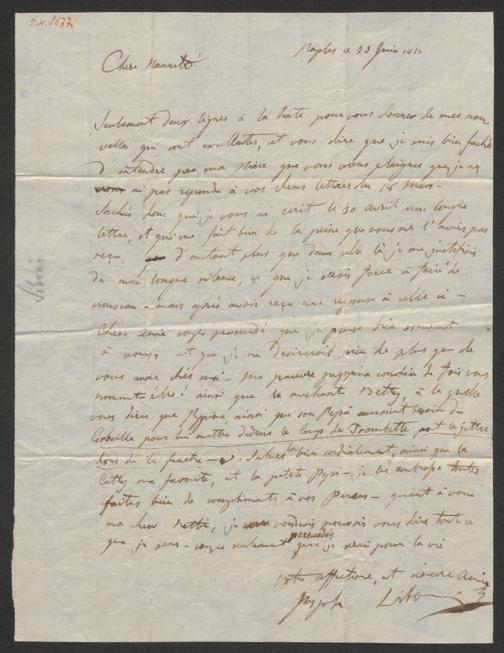 Naples ce 23 Juin 1815
Chere Nannette!
Seulement deux lignes à la hate pour vous donner de mes nou
velles qui sont excellentes, et vous dire que je suis bien faché
d'entendre par ma Mère que vous vous plaignes que je ne
vous ai pas reponde à vos cheres lettres du 18 Mars.
Sachés donc que je vous ai ecrit le 30 avril une longue
lettre, et qui me fait bien de la peine que vous ne l'aviés pas
reçu, d'autant plus que dans celle là je me justifiois
de mon longue silence, ce que je serais forcé à faire de
nouveau - mais après avoir reçu une reponse à celle ci -
Chere amie soyes persuadé que je pense bien souvent
à vous, et que je ne desirerois rien de plus que de
vous avoir chés moi - ma pauvre
ainsi que la mechant Betty, à la quelle
vous dires que ainsi que son auroient besoin du
Corbeille pour lui mettre dedans le loup de Trombette et la jetter
hors de la fenetre - bien cordialement, ainsi que la
Catty ma favorite, et la petite je les embrasse toutes
faites bien de compliments à vos - quant à vous
ma chere Netté, je voudrois pouvois vous dire tout ce
que je sens - soyes persuadés que je serai pour la vie
votre affectione, et sincere Ami